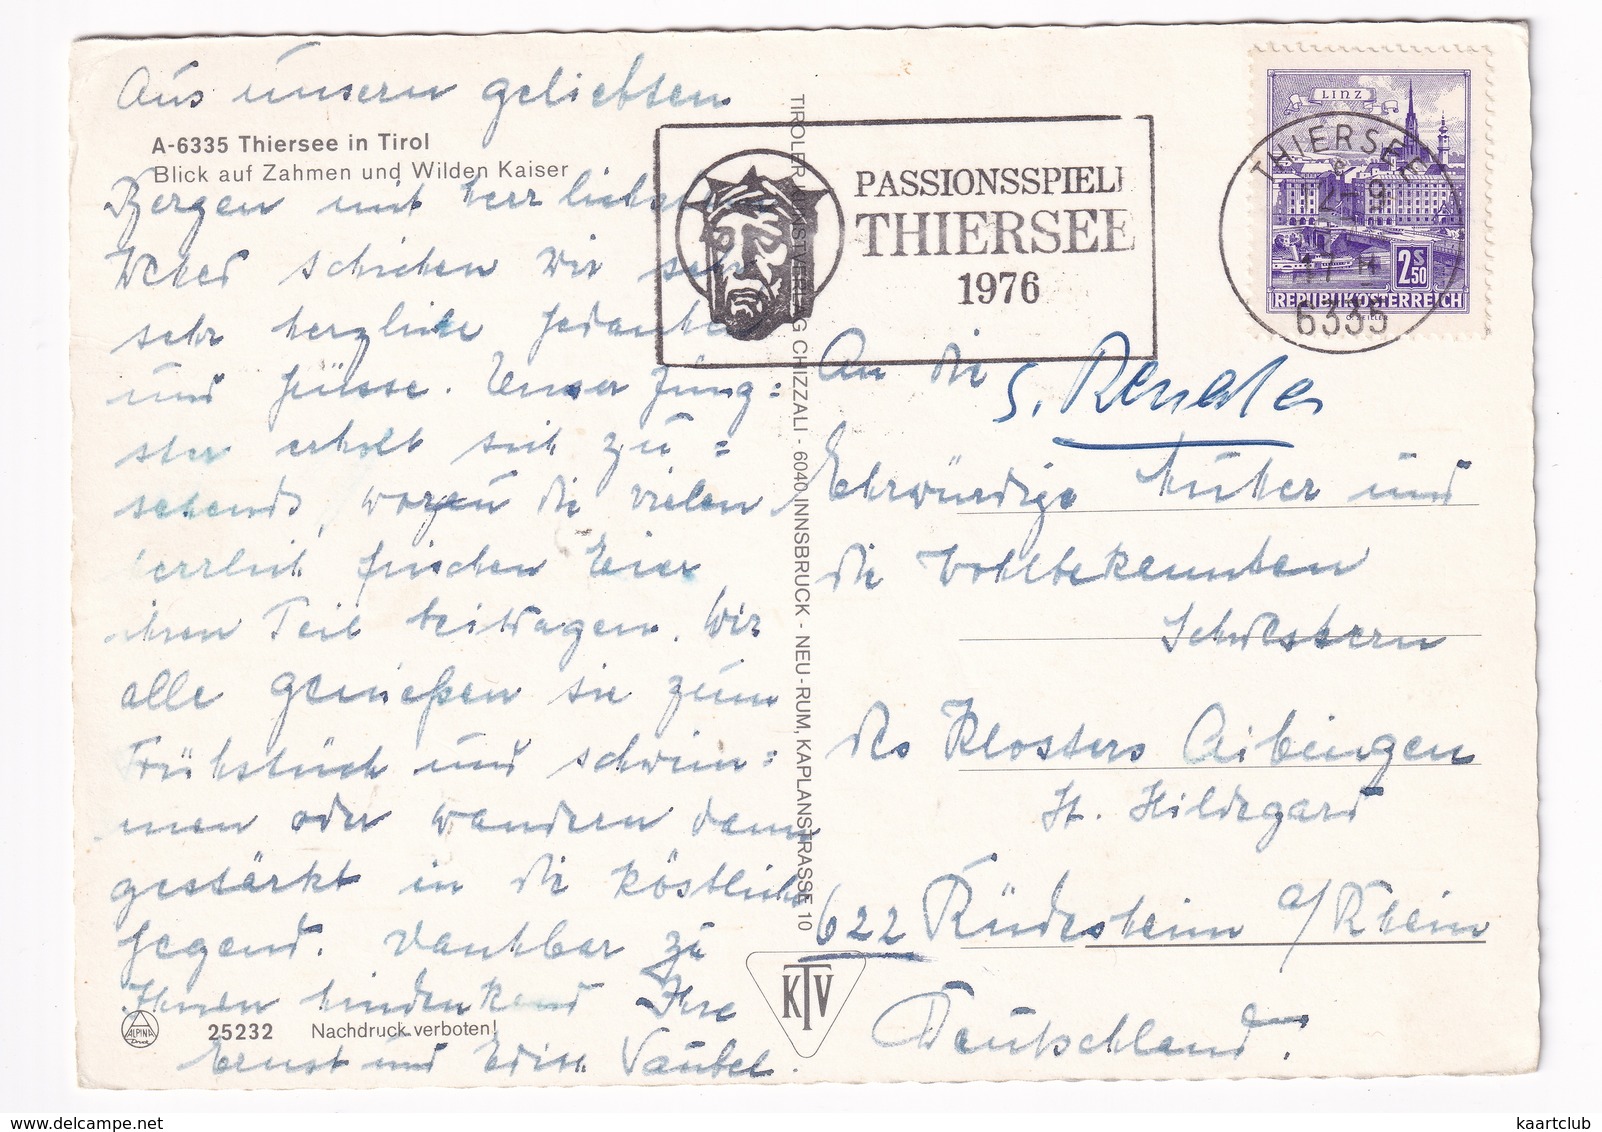 Aus unsern geliebten
A-6335 Thiersee in Tirol
Blick auf Zahmen und Wilden Kaiser
Bergen mit herrlichem
Wetter schicken wir sehr
sehr herzliche Gedanken
und Grüsse. Unser Jüng=
ster erholt sich zu=
sehends, wozu die vielen
herrlich frischen Eier
ihren Teil beitragen. Wir
alle genießen sie zum
Frühstück und schwim=
men oder wandern dann
gestärkt in die köstliche
Gegend. Dankbar zu
Ihnen hindenkend Ihre
Ernst und Edith Vaubel.
ALPINA
Druck
25232 Nachdruck verboten!
TIROLER KUNSTVERLAG CHIZZALI - 6040 INNSBRUCK - NEU-RUM, KAPLANSTRASSE 10
KTV
PASSIONSSPIELE
THIERSEE
1976
THIERSEE
6335
LINZ
2 S 50
REPUBLIK ÖSTERREICH
An die
S. Renata
Ehrwürdige Mutter und
die wohlbekannten
Schwestern
des Klosters Eibingen
St. Hildegard
622 Rüdesheim a/Rhein
Deutschland.
kaartclub